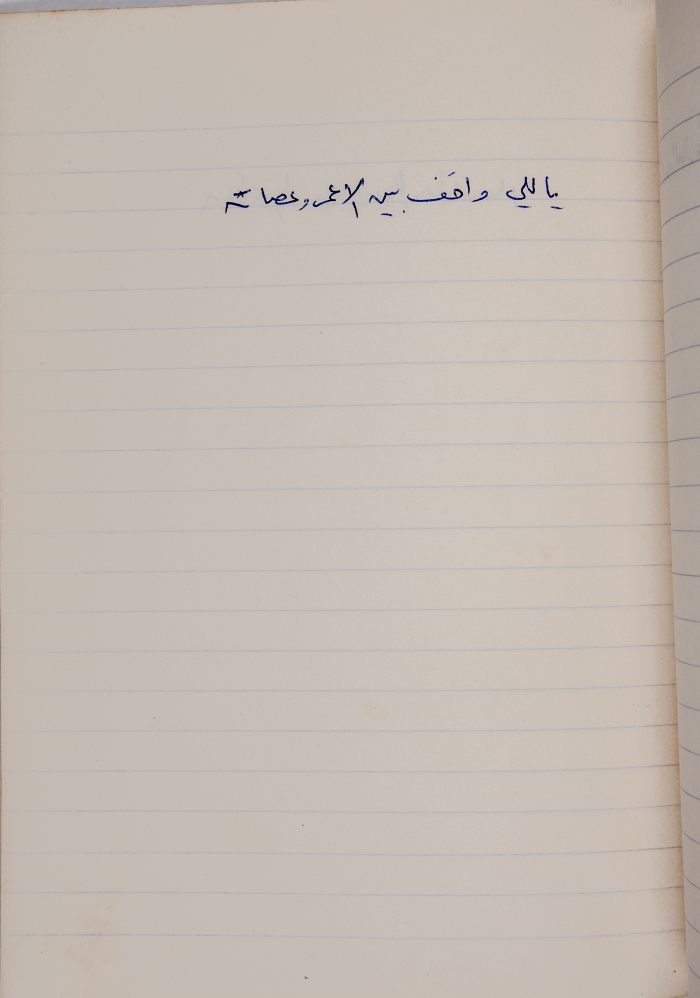 ياللي واقف بين الاعمر وعصاته